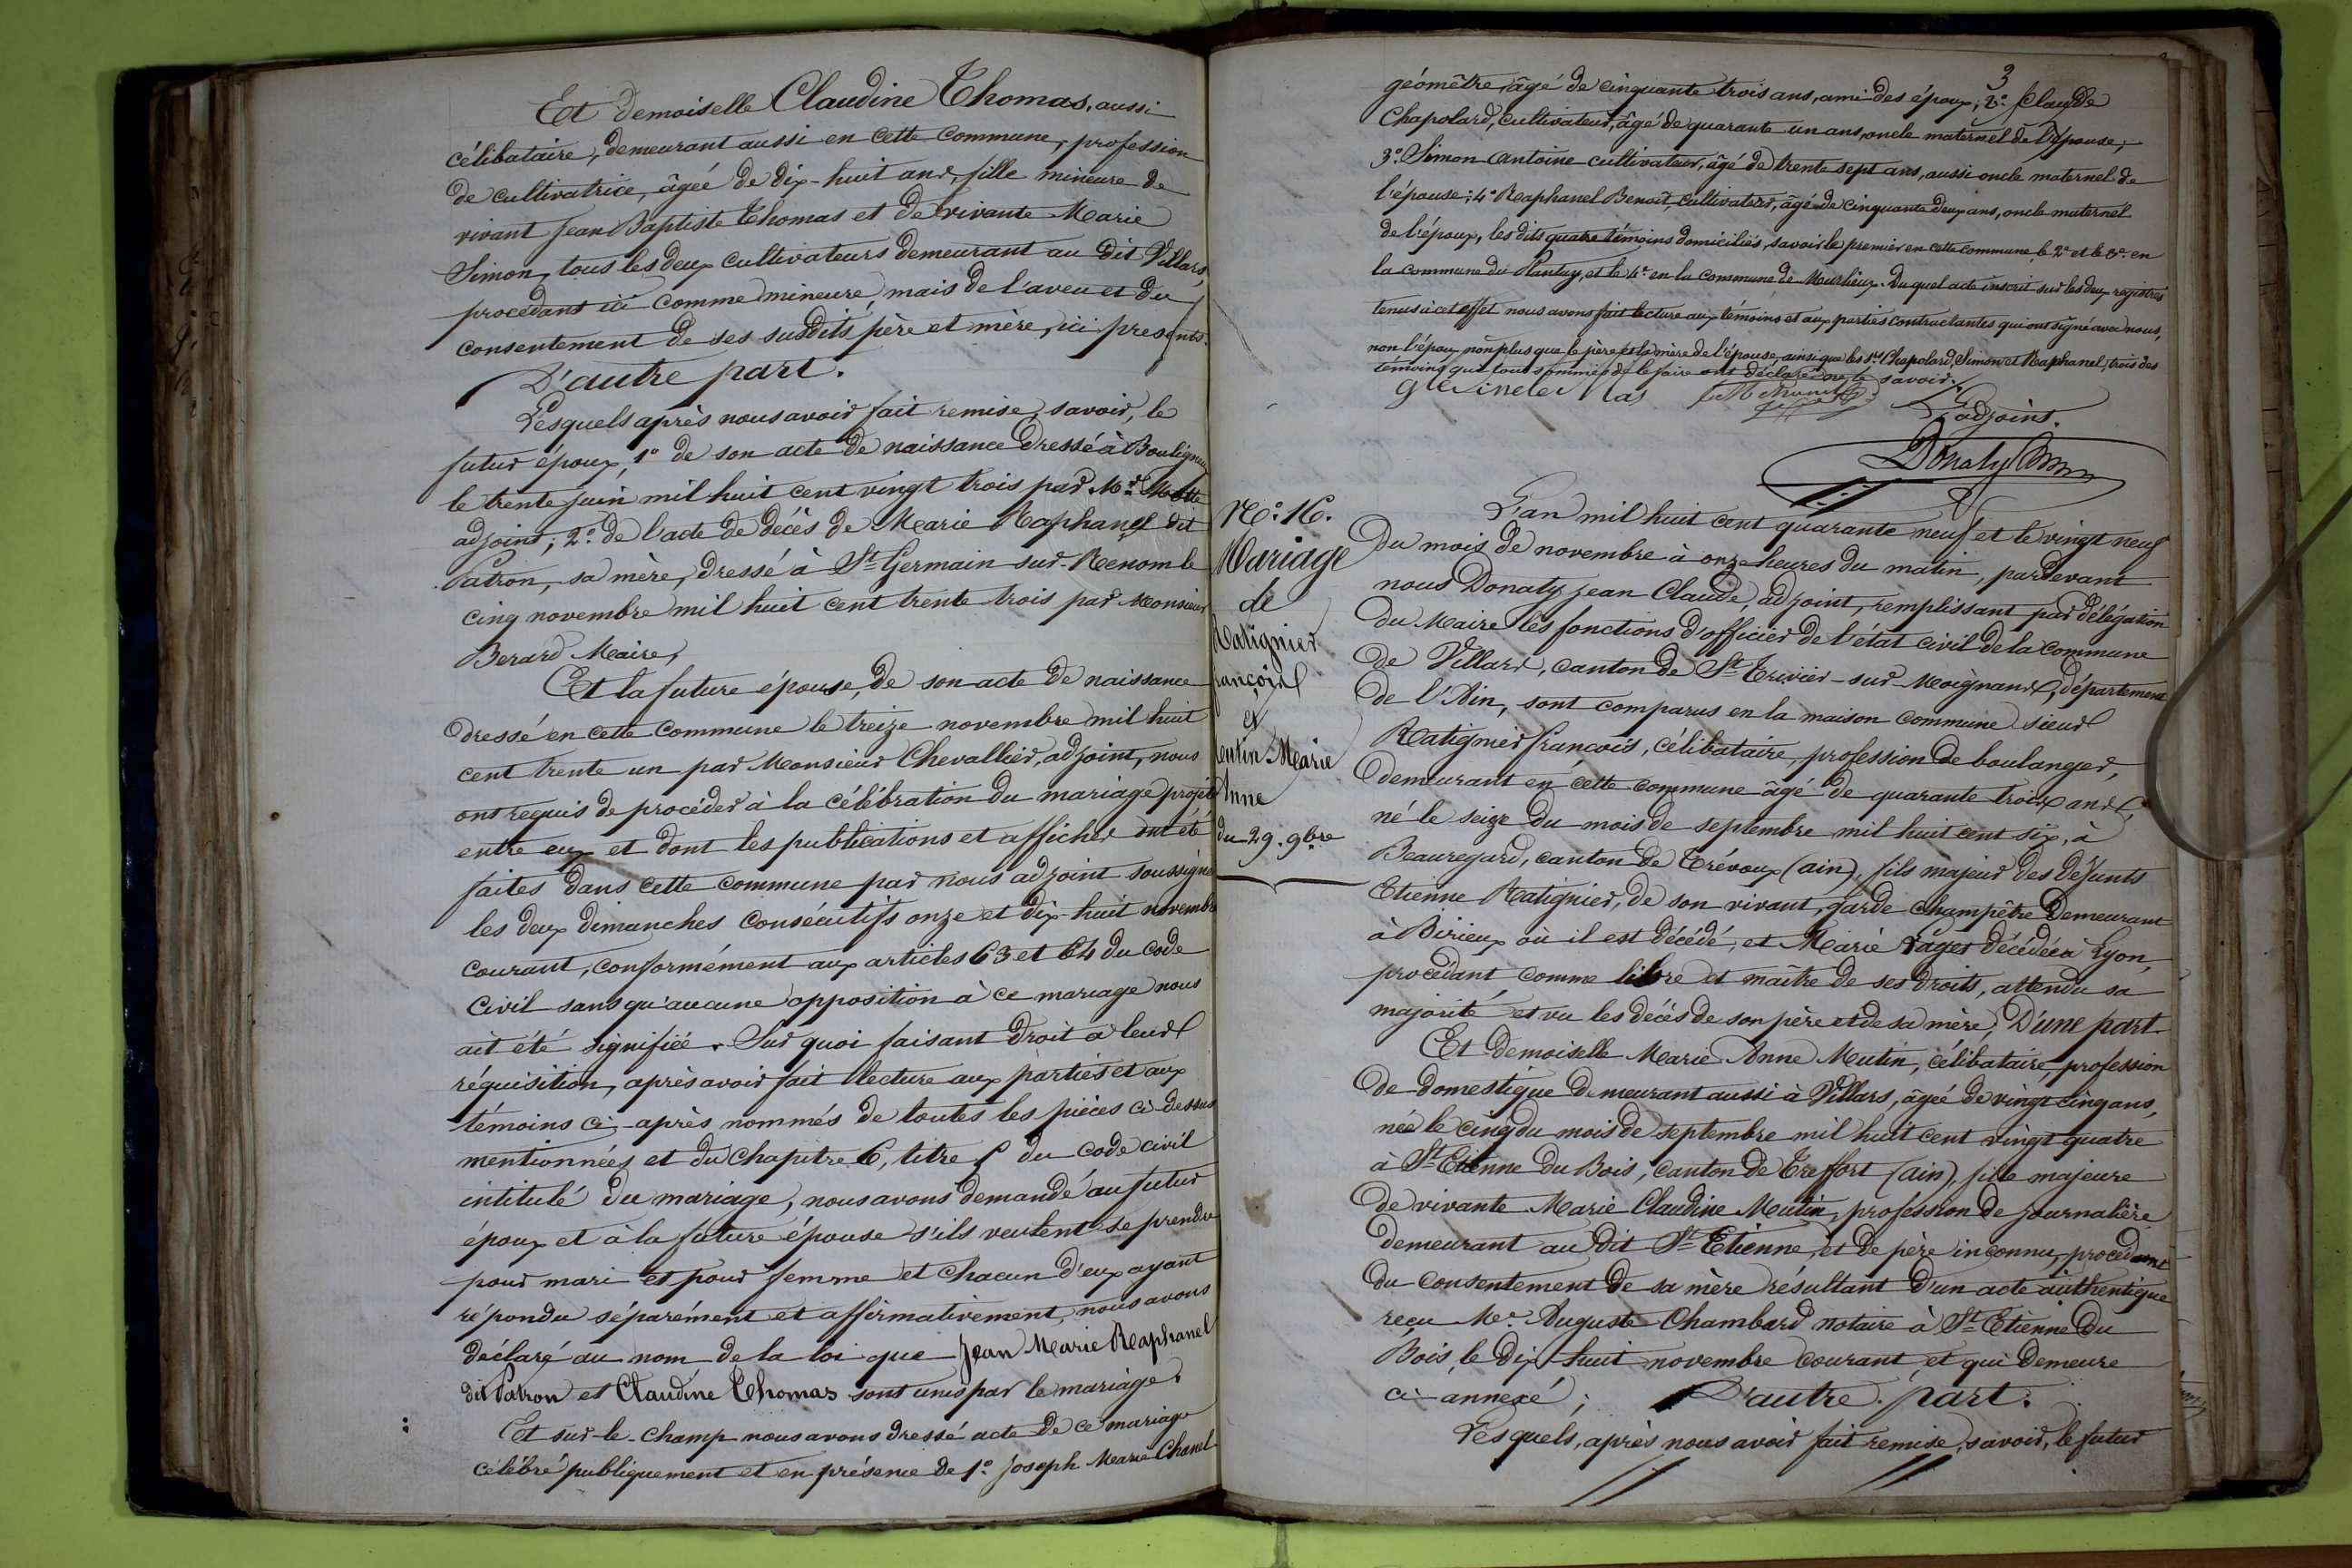 Et Demoiselle Claudine Thomas, aussi
célibataire, demeurant aussi en cette commune, profession
de cultivatrice, âgée de dix-huit ans, fille mineure de
vivant Jean Baptiste Thomas et de vivante Marie
Simon, tous les deux cultivateurs demeurant au dit Villars,
procédant ici comme mineure, mais de l'aveu et du
consentement de ses susdits père et mère, ici présents.
D'autre part.
Lesquels après nous avoir fait remise, savoir, le
futur époux, 1° de son acte de naissance dressé à Bouligneux
le trente juin mil huit cent vingt trois par Mr Motte
adjoint; 2° de l'acte de décès de Marie Raphanel dit
Patron, sa mère, dressé à St Germain sur-Renom le
cinq novembre mil huit cent trente trois par Monsieur
Berard Maire,
Et la future épouse, de son acte de naissance
dressé en cette commune le treize novembre mil huit
cent trente un par Monsieur Chevallier, adjoint, nous
ont requis de procéder à la célébration du mariage projeté
entre eux et dont les publications et affiches ont été
faites dans cette commune par nous adjoint soussigné
les deux dimanches consécutifs onze et dix-huit novembre
courant, conformément aux articles 63 et 64 du code
civil sans qu'aucune opposition à ce mariage nous
ait été signifiée. Sur quoi faisant droit à leur
réquisition, après avoir fait lecture aux parties et aux
témoins ci-après nommés de toutes les pièces ci-dessus
mentionnées et du chapitre 6, titre 5 du code civil
intitulé du mariage, nous avons demandé au futur
époux et à la future épouse s'ils veulent se prendre
pour mari et pour femme et chacun d'eux ayant
répondu séparément et affirmativement, nous avons
déclaré au nom de la loi que Jean Marie Raphanel
dit Patron et Claudine Thomas sont unis par le mariage.
Et sur-le-champ nous avons dressé acte de ce mariage
célébré publiquement et en présence de 1° Joseph Marie Chanel
3
géomêtre, âgé de cinquante trois ans, ami des époux; 2° Claude
Chapolard, cultivateur, âgé de quarante un ans, oncle maternel de l'épouse;
3° Simon Antoine cultivateur, âgé de trente sept ans, aussi oncle maternel de
l'épouse; 4° Raphanel Benoît, cultivateur, âgé de cinquante deux ans, oncle maternel
de l'époux, les dits quatre témoins domiciliés, savoir le premier en cette commune, le 2e et le 3e en
la commune du Plantay, et le 4e en la commune de Marlieux. Du quel acte inscrit sur les deux registres
tenus à cet effet nous avons fait lecture aux témoins et aux parties contractantes qui ont signé avec nous,
non l'époux non plus que le père et la mère de l'épouse, ainsi que les srs Chapolard, Simon et Raphanel, trois des
témoins qui tous sommés de le faire ont déclaré ne le savoir.
L'adjoint.
Donaty
N°. 16.
Mariage
de
Ratignier
françois
et
Mutin Marie
Anne
du 29. 9bre
L'an mil huit cent quarante neuf et le vingt neuf
du mois de novembre à onze heures du matin, pardevant
nous Donaty Jean Claude, adjoint, remplissant par délégation
du Maire les fonctions d'officier de l'état civil de la commune
de Villars, canton de St Trivier-sur-Moignans, département
de l'Ain, sont comparus en la maison commune sieur
Ratignier françois, célibataire, profession de boulanger,
demeurant en cette commune âgé de quarante trois ans,
né le seize du mois de septembre mil huit cent six, à
Beauregard, canton de Trévoux (ain), fils majeur des défunts
Etienne Ratignier, de son vivant, garde champêtre demeurant
à Birieux où il est décédé, et Marie Pages décédée à Lyon,
procédant comme libre et maître de ses droits, attendu sa
majorité et vu les décès de son père et de sa mère, D'une part.
Et Demoiselle Marie Anne Mutin, célibataire, profession
de domestique demeurant aussi à Villars, âgée de vingt cinq ans,
née le cinq du mois de septembre mil huit cent vingt quatre
à St Etienne du Bois, canton de Treffort (ain), fille majeure
de vivante Marie Claudine Mutin, profession de journalière
demeurant au dit St Etienne, et de père inconnu, procédant
du consentement de sa mère résultant d'un acte authentique
reçu Me Auguste Chambard notaire à St Etienne du
Bois, le dix huit novembre courant et qui demeure
ci-annexé; D'autre part.
Lesquels, après nous avoir fait remise, savoir, le futur